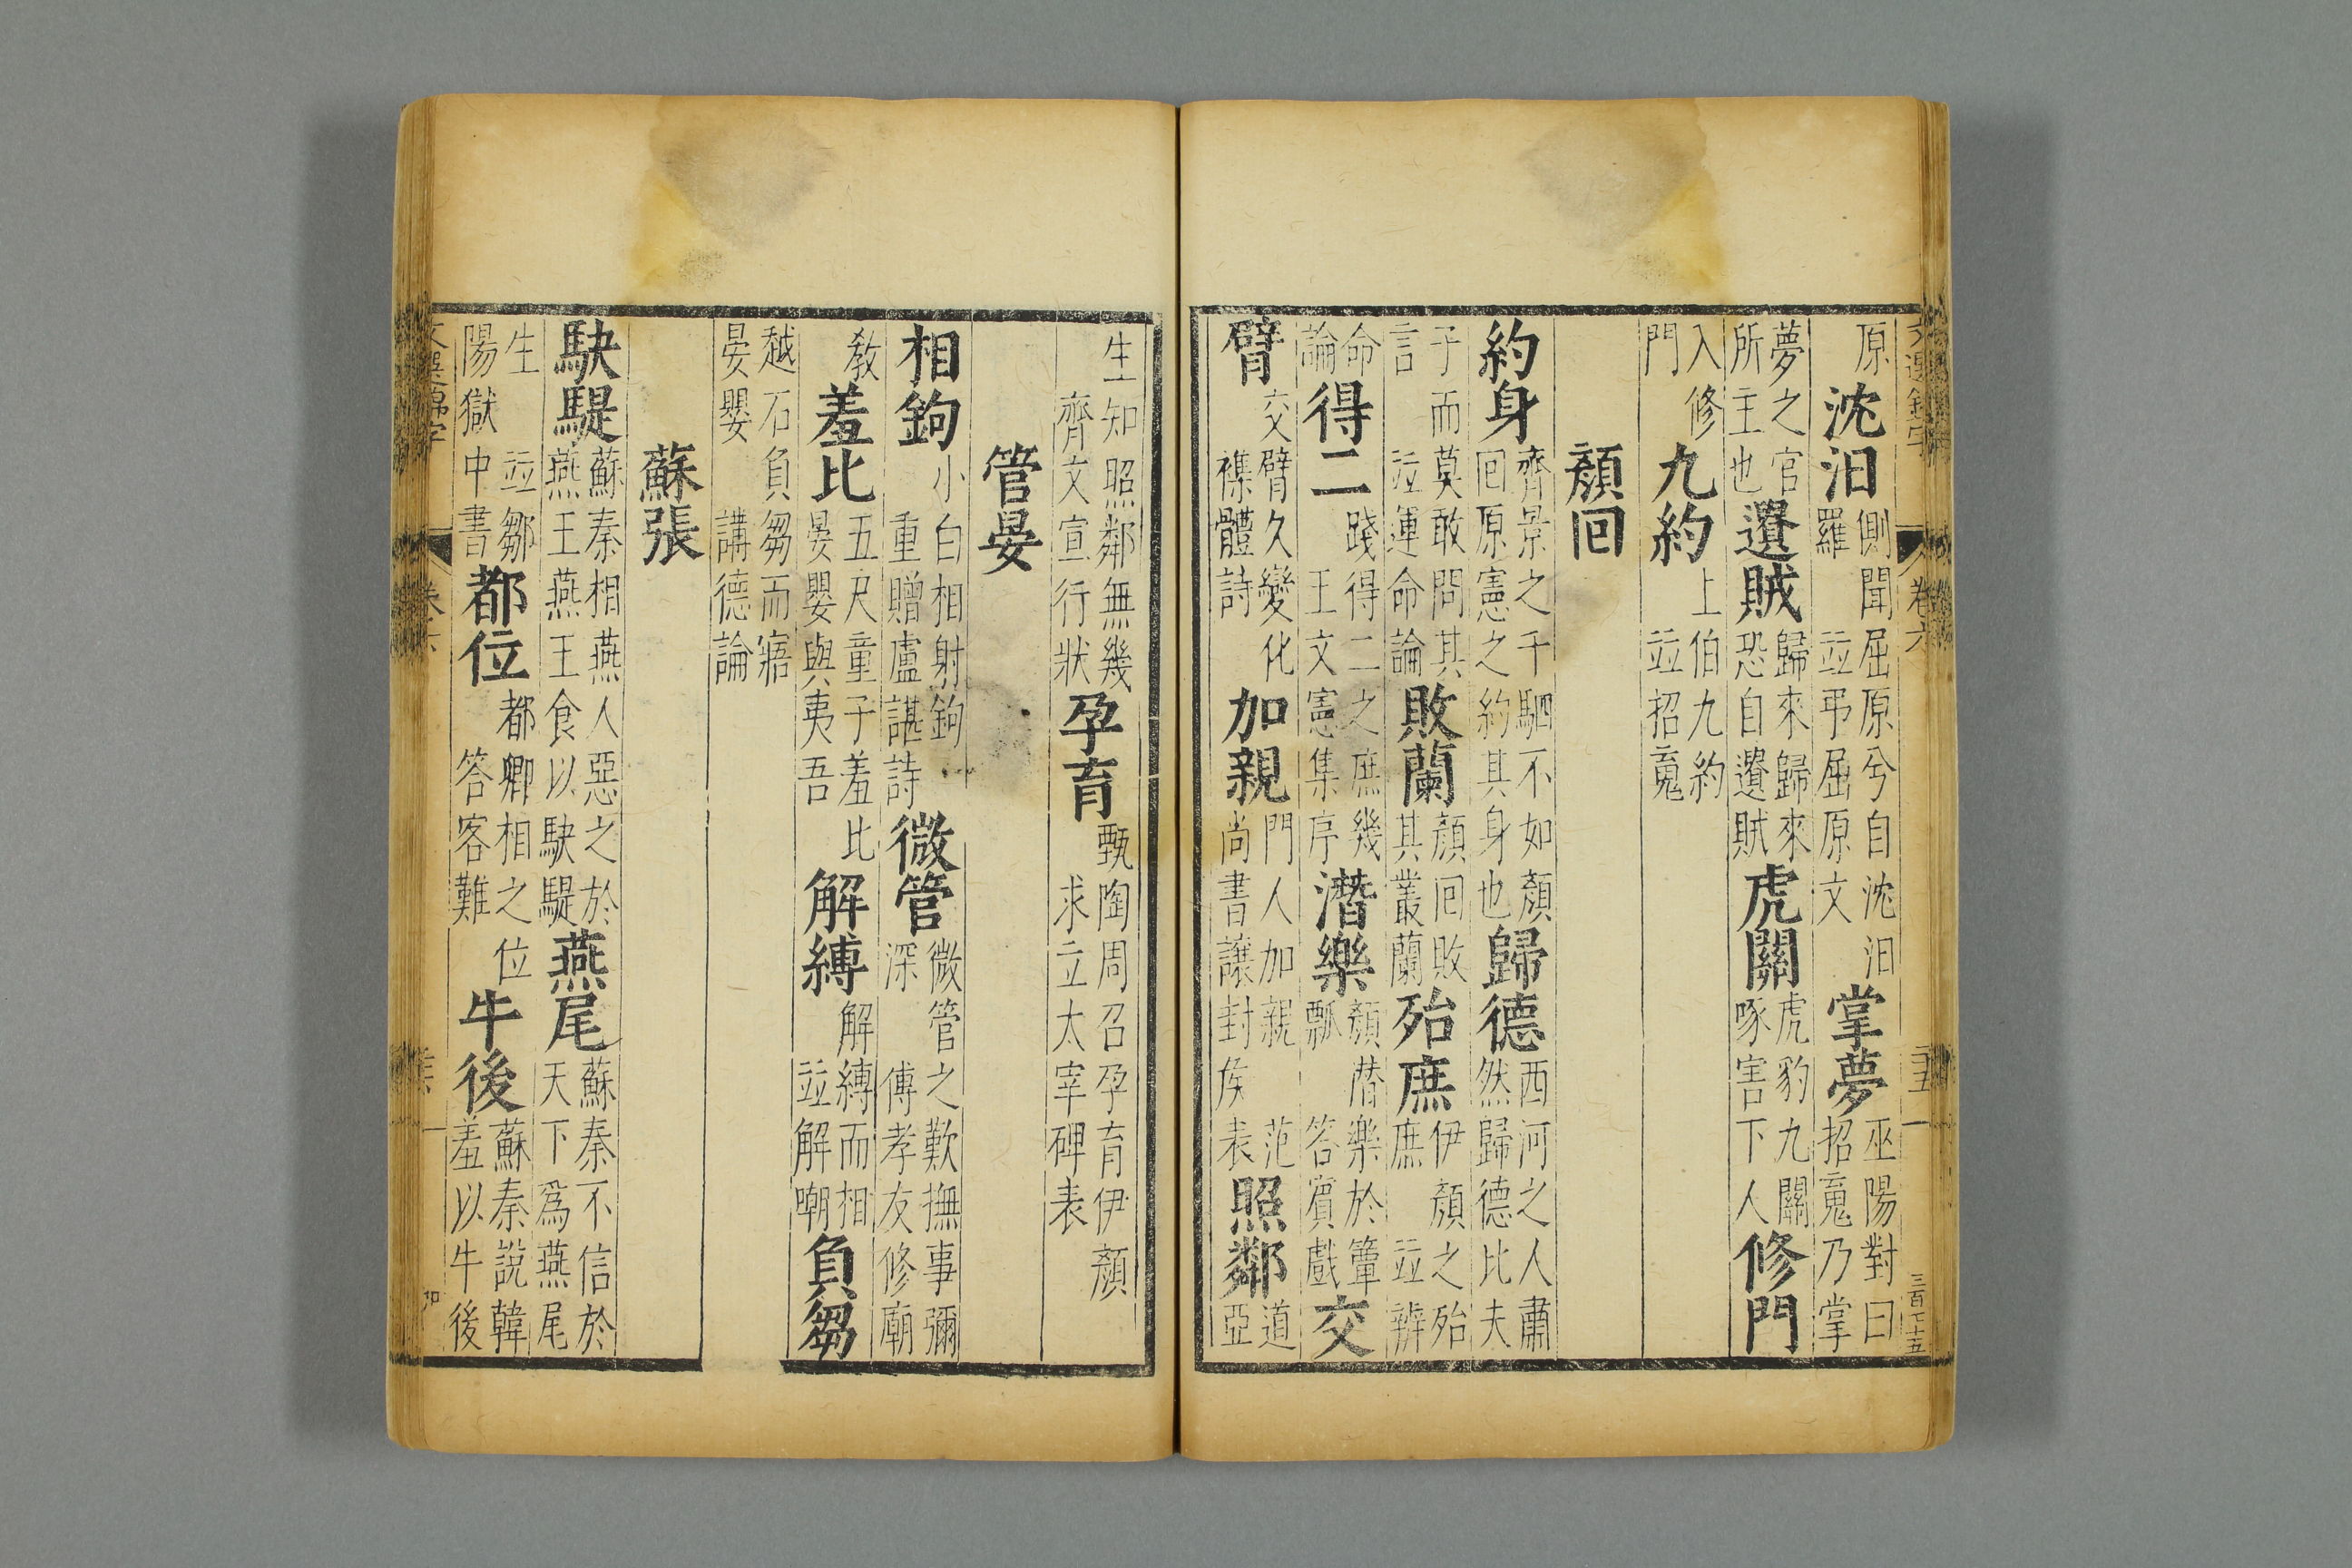 文選錦字 卷六 三五一 三百七十五
原沈汨側聞屈原兮自沈汨羅並弔屈原文掌夢巫陽對曰招䰟乃掌
夢之官所主也遺賊歸來歸來恐自遺賊虎關虎豹九關啄害下人修門
入修門九約上伯九約並招䰟
顏回
約身齊景之千駟不如顏回原憲之約其身也歸德西河之人肅然歸德比夫
子而莫敢問其言並運命論敗蘭顏回敗其叢蘭殆庶伊顏之殆庶並辨
命論得二踐得二之庶幾王文憲集序潛樂顏潛樂於簞瓢答賓戲交
臂交臂久變化襍體詩加親門人加親范尚書讓封侯表照鄰道亞
生知照鄰無幾齊文宣行狀孕育甄陶周召孕育伊顏求立太宰碑表
管晏
相鉤小白相射鉤重贈盧諶詩微管微管之歎撫事彌深傅孝友修廟
教羞比五尺童子羞比晏嬰與夷吾解縛解縛而相並解嘲負芻
越石負芻而寤晏嬰講德論
蘇張
駃騠蘇秦相燕人惡之於燕王燕王食以駃騠燕尾蘇秦不信於天下爲燕尾
生並鄒陽獄中書都位都卿相之位答客難牛後蘇秦說韓羞以牛後
文選錦字 卷六